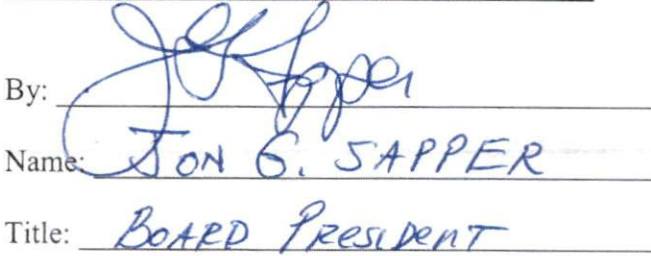 By:
Name: JON G. SAPPER
Title: BOARD PRESIDENT